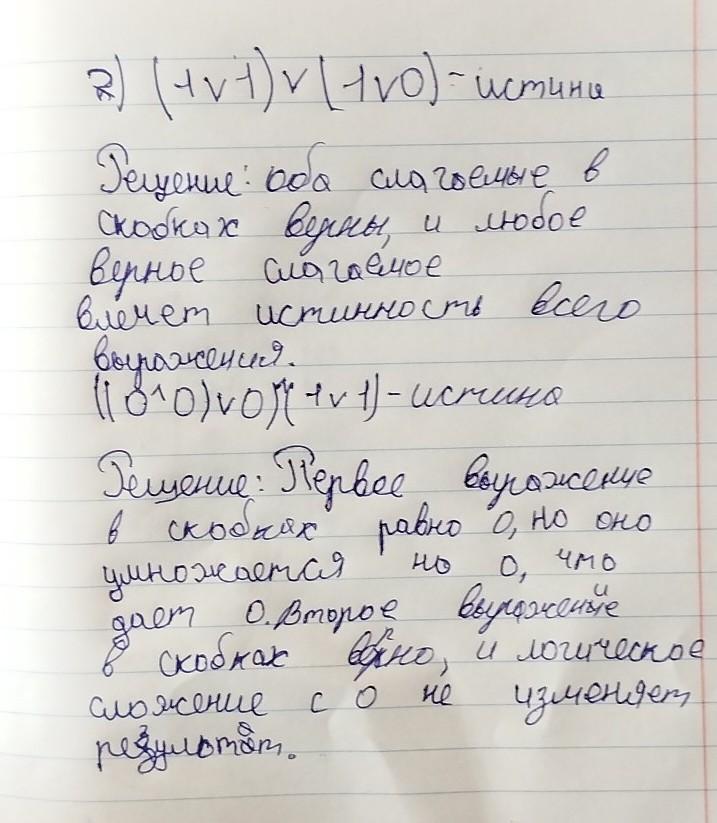 2) (1v1)v(1v0)-истина
Решение: оба слагаемые в
скобках верны, и любое
верное слагаемое
влечет истинность всего
выражения.
((0^0)v0)^(1v1)-истина
Решение: Первое выражение
в скобках равно 0, но оно
умножается на 0, что
дает 0. Второе выражение
в скобках верно, и логическое
сложение с 0 не изменяет
результат.